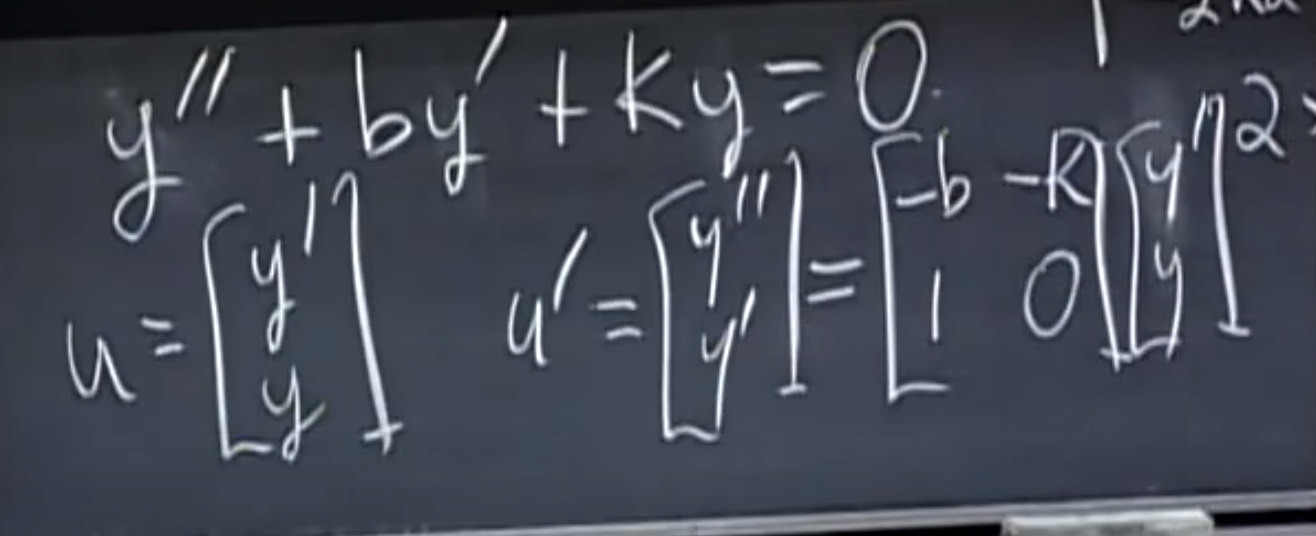 y'' + by' + ky = 0
u = [y' y] u' = [y'' y'] = [-b -k 1 0] [y' y]
2